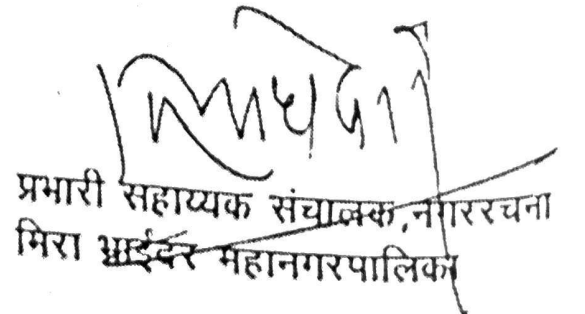 प्रभारी सहाय्यक संचालक,नगररचना
मिरा भाईंदर महानगरपालिका